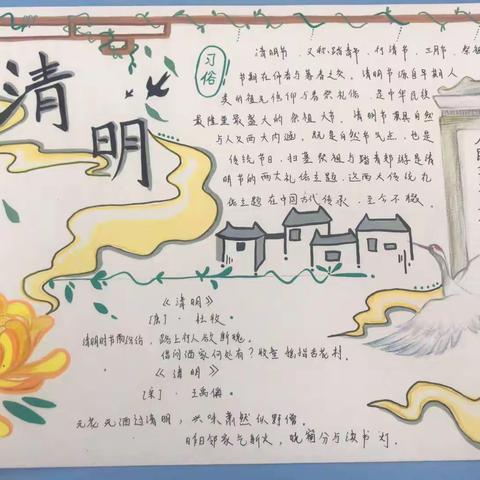 清明
习俗
清明节，又称踏青节、行清节、三月节、祭祖
节期在仲春与暮春之交。清明节源自早期人
类的祖先信仰与春祭礼俗，是中华民族
最隆重最盛大的祭祖大节。清明节兼具自然
与人文两大内涵，既是自然节气点，也是
传统节日，扫墓祭祖与踏青郊游是清
明节的两大礼俗主题，这两大传统礼
俗主题在中国古代传承，至今不辍。
《清明》
[唐]·杜牧
清明时节雨纷纷，路上行人欲断魂。
借问酒家何处有？牧童遥指杏花村。
《清明》
[宋]·王禹偁
无花无酒过清明，兴味萧然似野僧。
昨日邻家乞新火，晓窗分与读书灯。